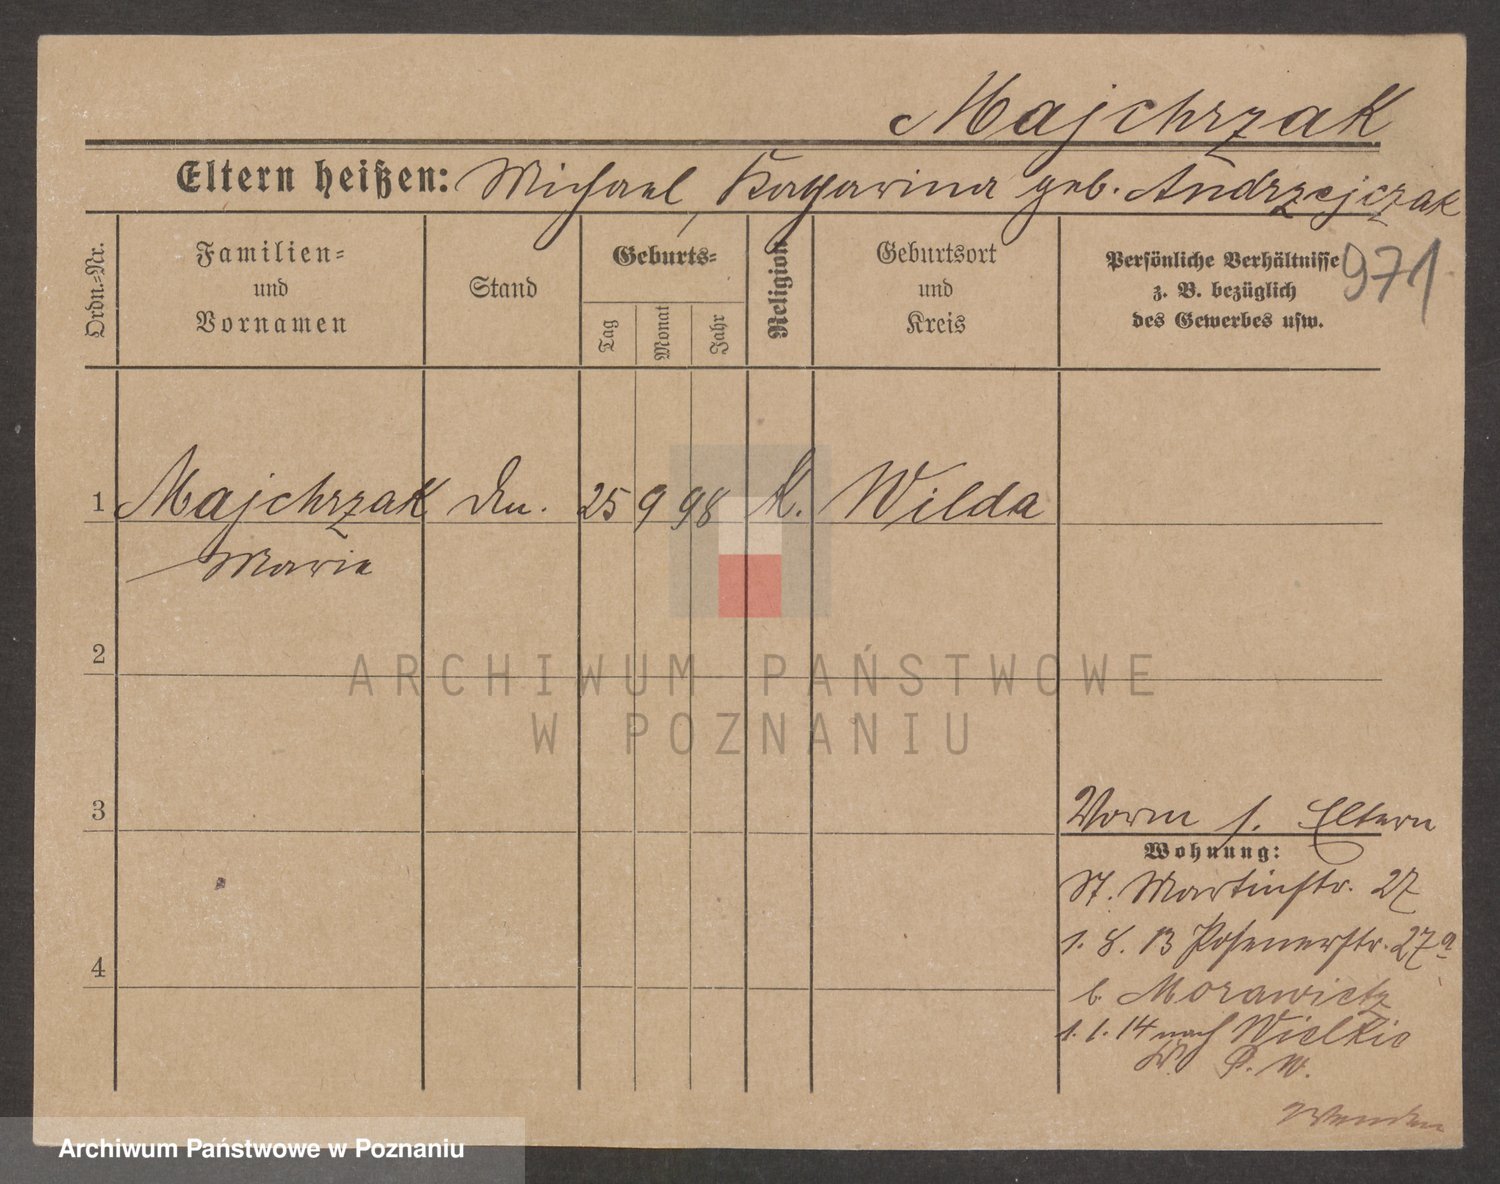 Majchrzak
Eltern heißen: Michael, Katharina geb. Andrzejczak
Ordn.-Nr.
Familien-
und
Vornamen
Stand
Geburts-
Tag
Monat
Jahr
Religion
Geburtsort
und
Kreis
Persönliche Verhältnisse
z. B. bezüglich
des Gewerbes usw.
971
1 Majchrzak 25 9 98 K. Wilda
Marie
2
3
4
Vorm s. Eltern
Wohnung:
St. Martinstr. 27
1. 8. 13 Posenerstr. 27a
b. Morawietz
1. 1. 14 nach Wielkie
Wenden
ARCHIWUM PAŃSTWOWE
W POZNANIU
Archiwum Państwowe w Poznaniu